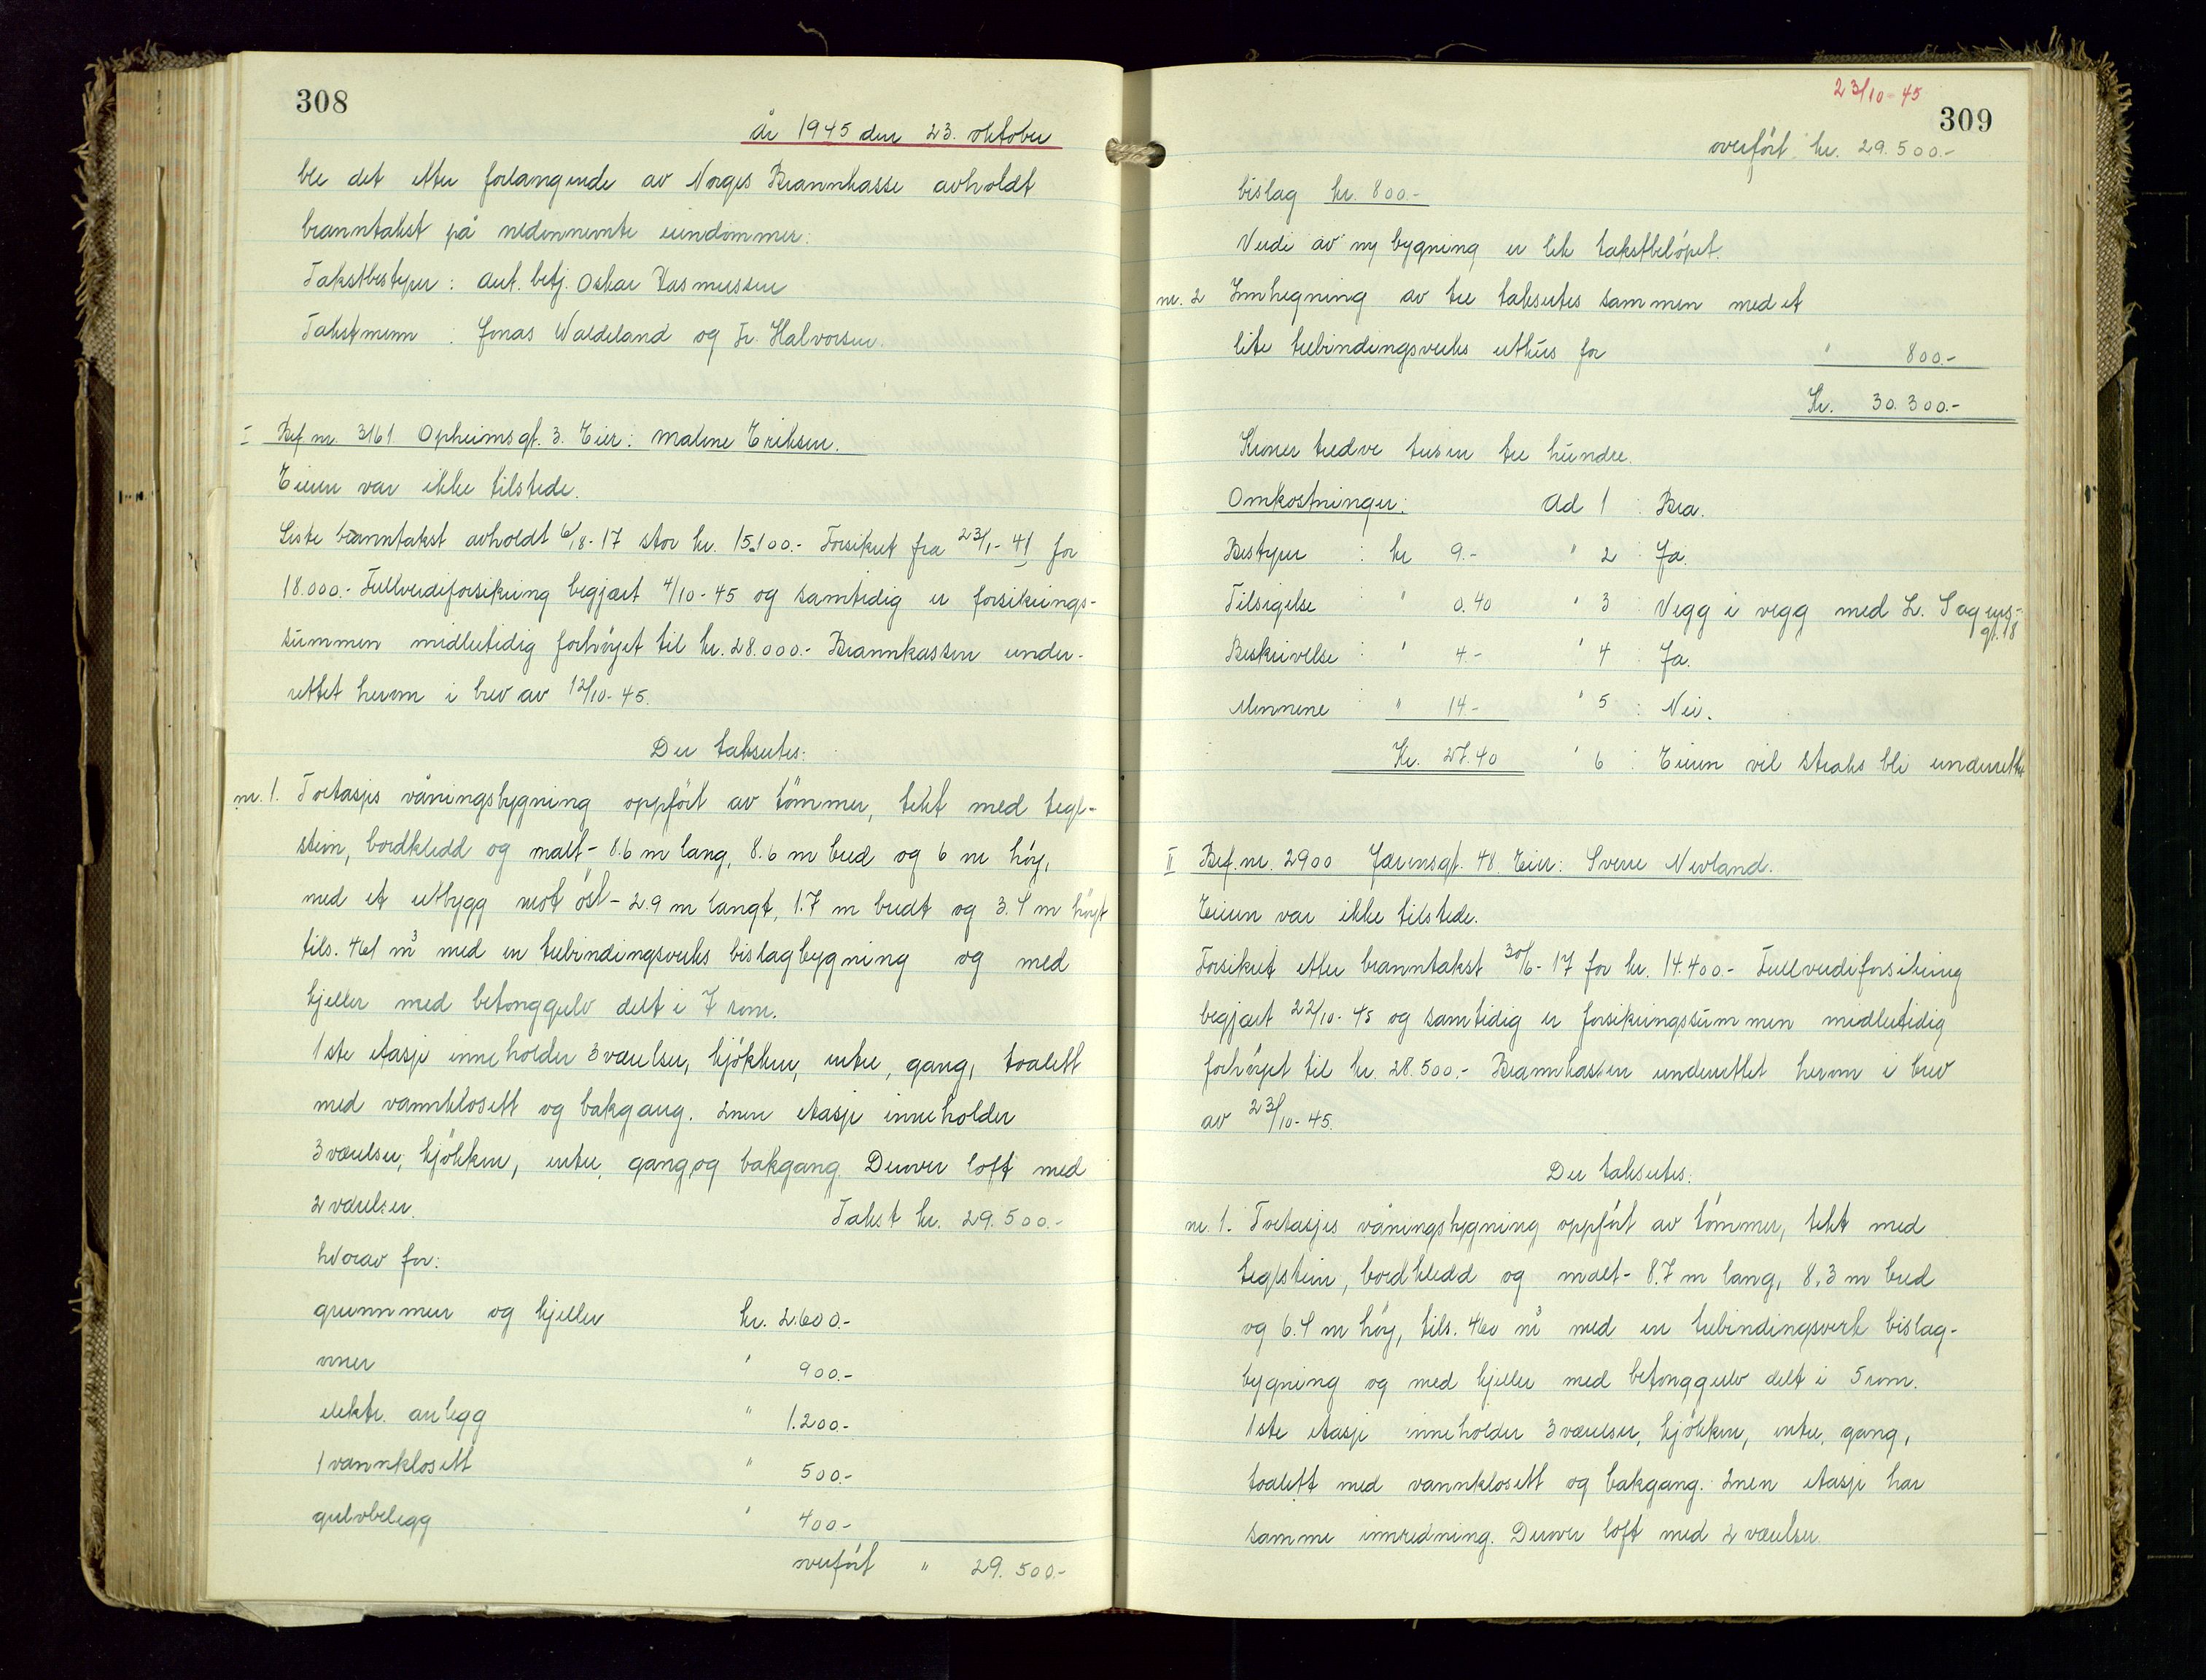 308
år 1945 den 23. oktober
ble det etter forlangende av Norges Brannkasse avholdt
branntakst på nedennevnte eiendommer:
Takstbestyrer: aut. betj. Oskar Rasmussen
Takstmenn : Jonas Waldeland og Fr. Halvorsen.
I Bef. nr. 3161 Opheimsgt. 3. Eier: Maline Eriksen.
Eieren var ikke tilstede.
Siste branntakst avholdt 6/8-17 stor kr. 15.100.- Forsikret fra 23/1-41 for
18.000.- Fullverdiforsikring begjært 4/10-45 og samtidig er forsikrings-
summen midlertidig forhöyet til kr. 28.000.- Brannkassen under-
rettet herom i brev av 12/10-45.
Der takseres:
nr. 1. Toetasjes våningsbygning oppfört av tömmer, tekt med tegl-
stein, bordkledd og malt - 8.6 m lang, 8.6 m bred og 6 m höy,
med et utbygg mot öst - 2.9 m langt, 1.7 m bredt og 3.4 m höyt
tils. 461 m³ med en trebindingsverks bislagbygning og med
kjeller med betonggulv delt i 7 rom.
1ste etasje inneholder 3 værelser, kjökken, entre, gang, toalett
med vannklosett og bakgang. 2nen etasje inneholder
3 værelser, kjökken, entre, gang og bakgang. Derover loft med
2 værelser. Takst kr. 29.500.-
hvorav for:
grunnmur og kjeller kr. 2.600.-
ovner " 900.-
elektr. anlegg " 1.200.-
1 vannklosett " 500.-
gulvbelegg " 400.-
overfört " 29.500.-
23/10-45
309
overfört kr. 29.500.-
bislag kr. 800.-
Verdi av ny bygning er lik takstbelöpet.
nr. 2 Innhegning av tre takseres sammen med et
lite trebindingsverks uthus for " 800.-
Kr. 30.300.-
Kroner tredve tusen tre hundre.
Omkostninger: Ad 1 : Bra.
Bestyrer : kr 9.- " 2 : Ja.
Tilsigelse : " 0.40 " 3 : Vegg i vegg med L. Sagens-
gt. 18
Beskrivelse : " 4.- " 4 : Ja.
Mennene : " 14.- " 5 : Nei.
Kr. 27.40 " 6 : Eieren vil straks bli underrettet
II Bef. nr. 2900 Jærensgt. 48. Eier: Sverre Nevland.
Eieren var ikke tilstede.
Forsikret etter branntakst 30/6-17 for kr. 14.400.- Fullverdiforsikring
begjært 22/10-45 og samtidig er forsikringssummen midlertidig
forhöyet til kr. 28.500.- Brannkassen underrettet herom i brev
av 23/10-45.
Der takseres:
nr. 1. Toetasjes våningsbygning oppfört av tömmer, tekt med
teglstein, bordkledd og malt - 8.7 m lang, 8,3 m bred
og 6.4 m höy, tils. 460 m³ med en trebindingsverk bislag-
bygning og med kjeller med betonggulv delt i 5 rom.
1ste etasje inneholder 3 værelser, kjökken, entre, gang,
toalett med vannklosett og bakgang. 2nen etasje har
samme innredning. Derover loft med 2 værelser.